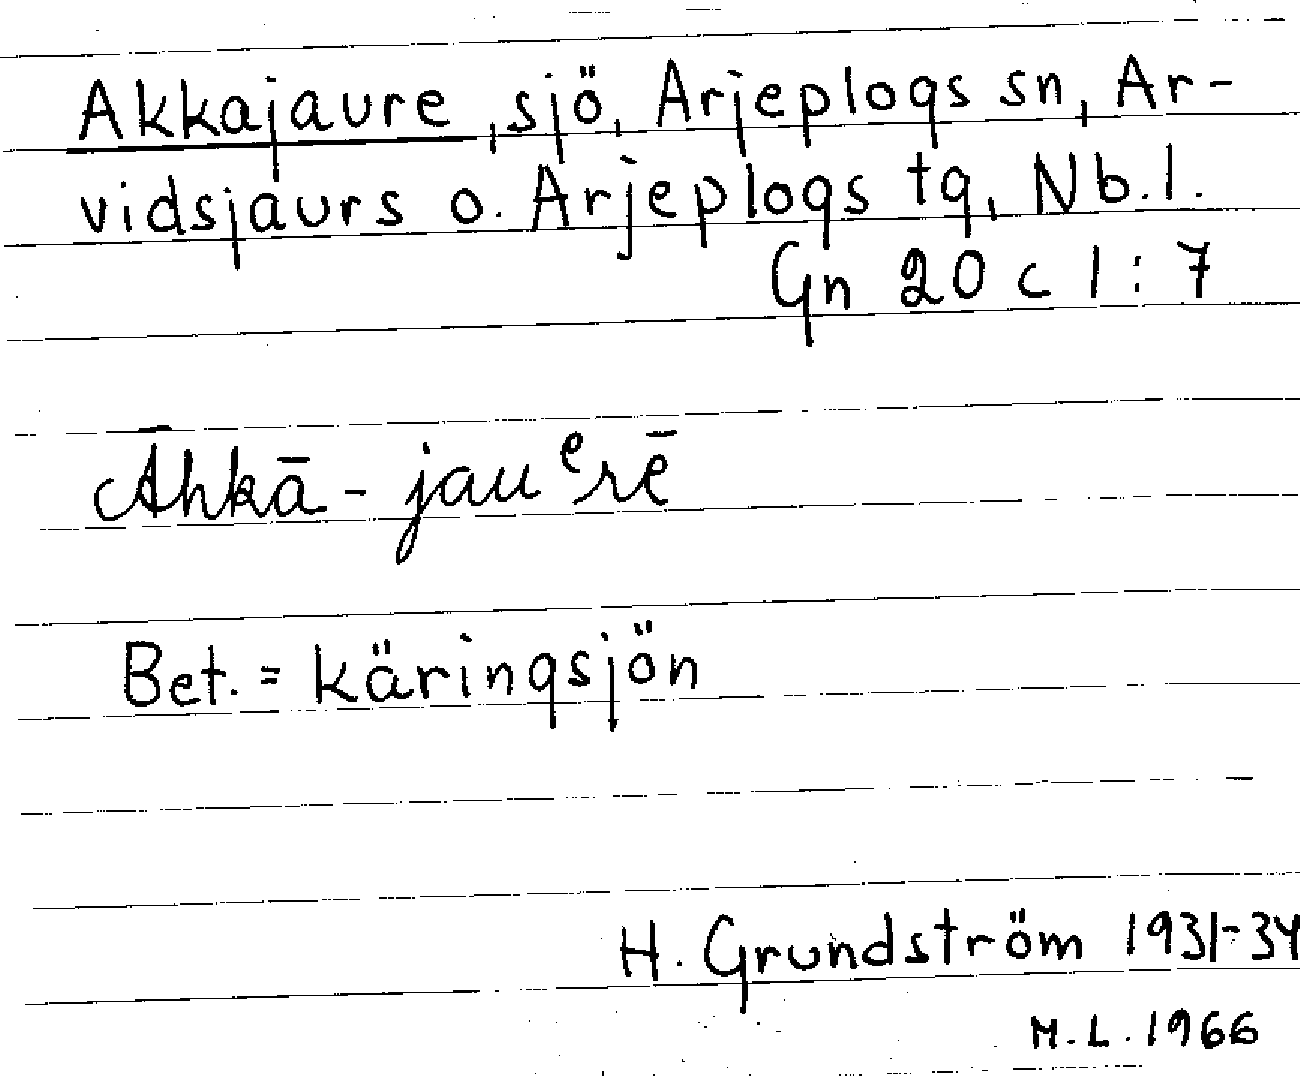 Akkajaure, sjö, Arjeplogs sn, Ar-
vidsjaurs o. Arjeplogs tg, Nb.l.
Gn 20 c 1:7
Āhkā-jauᵉrē
Bet. = käringsjön
H. Grundström 1931-34
M.L. 1966